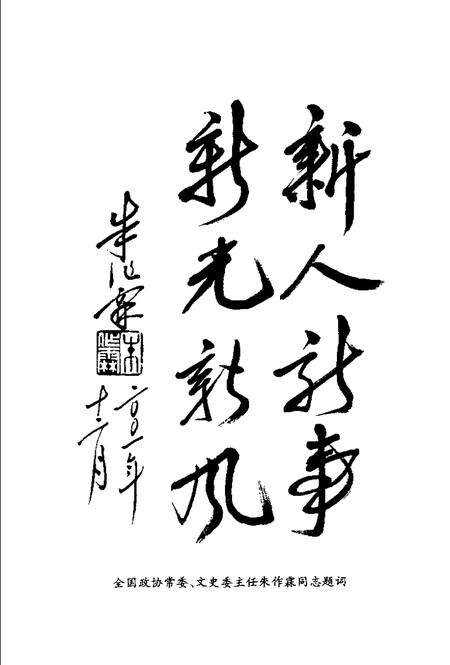 新人新事
新光新风
朱作霖
二〇〇一年
十二月
全国政协常委、文史委主任朱作霖同志题词